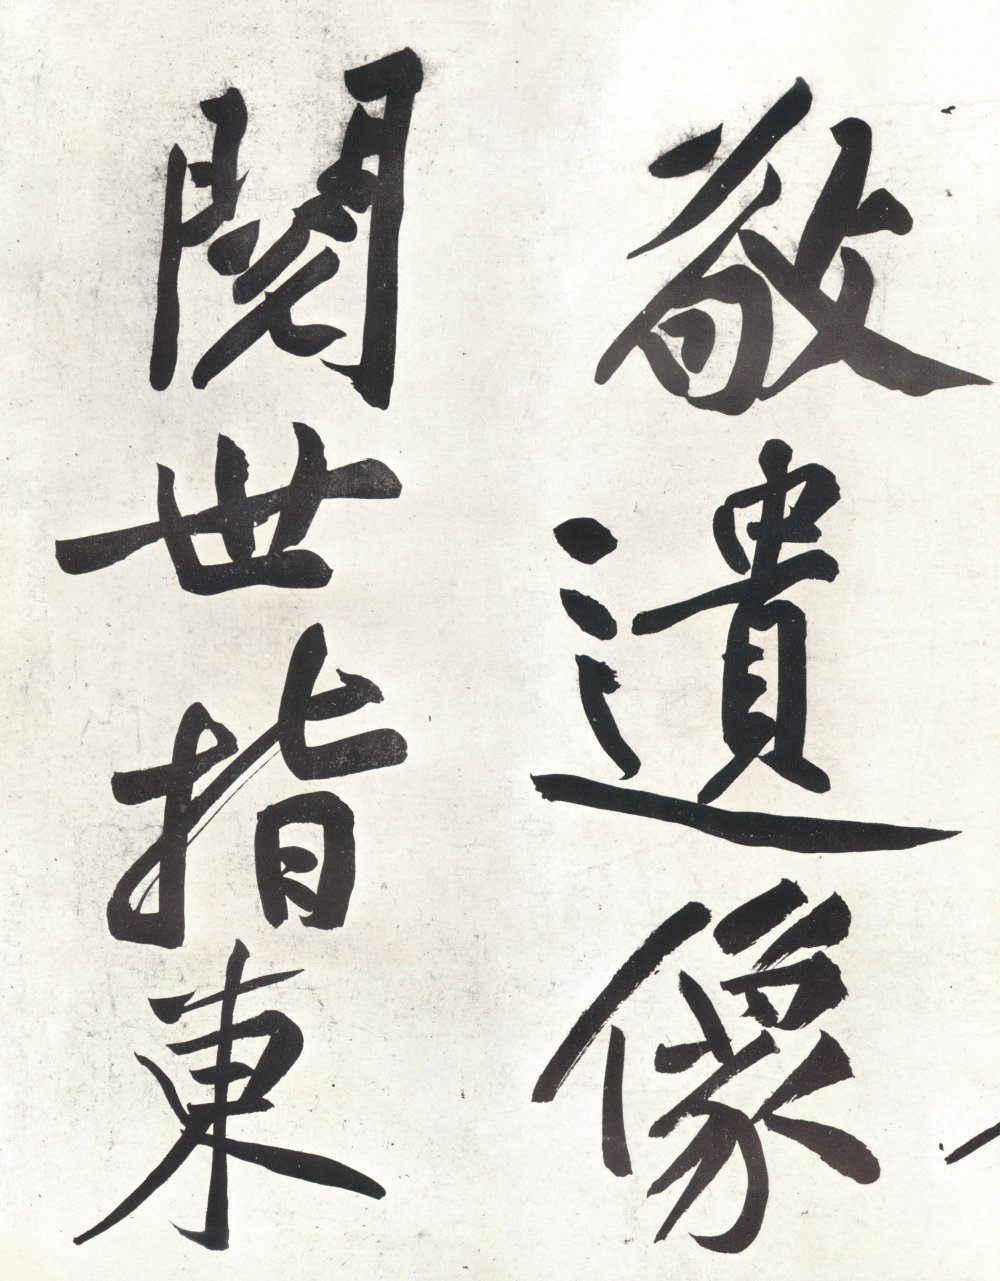 敬遺像
閱世指東